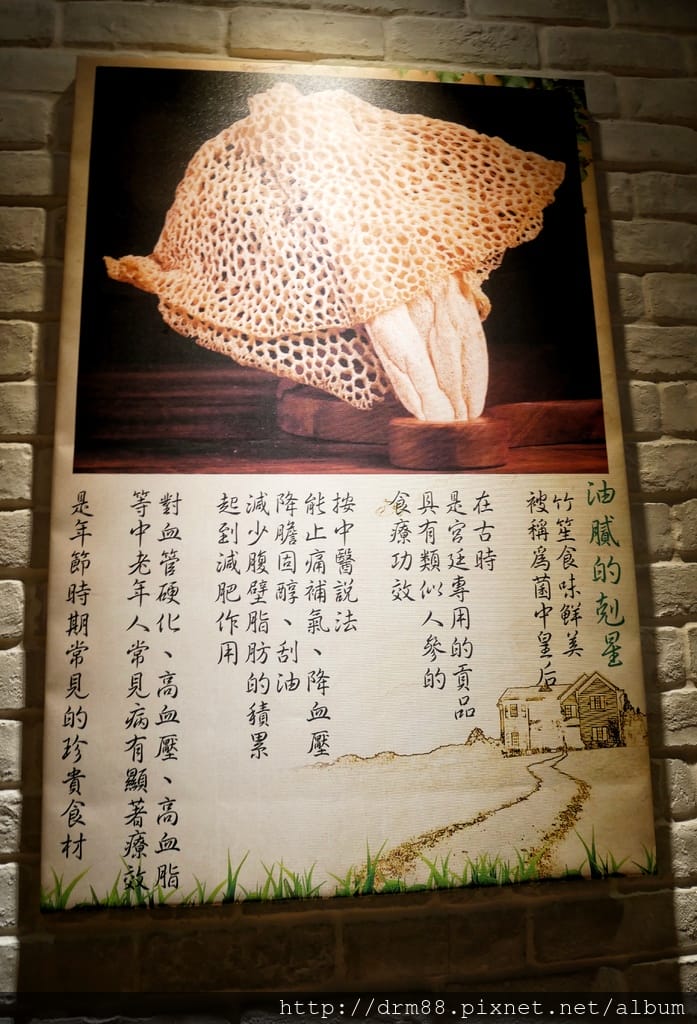 油膩的剋星
竹笙食味鮮美
被稱爲菌中皇后
在古時
是宮廷專用的貢品
具有類似人參的
食療功效
按中醫說法
能止痛補氣、降血壓
降膽固醇、刮油
減少腹壁脂肪的積累
起到減肥作用
對血管硬化、高血壓、高血脂
等中老年人常見病有顯著療效
是年節時期常見的珍貴食材
http://drm88.pixnet.net/album